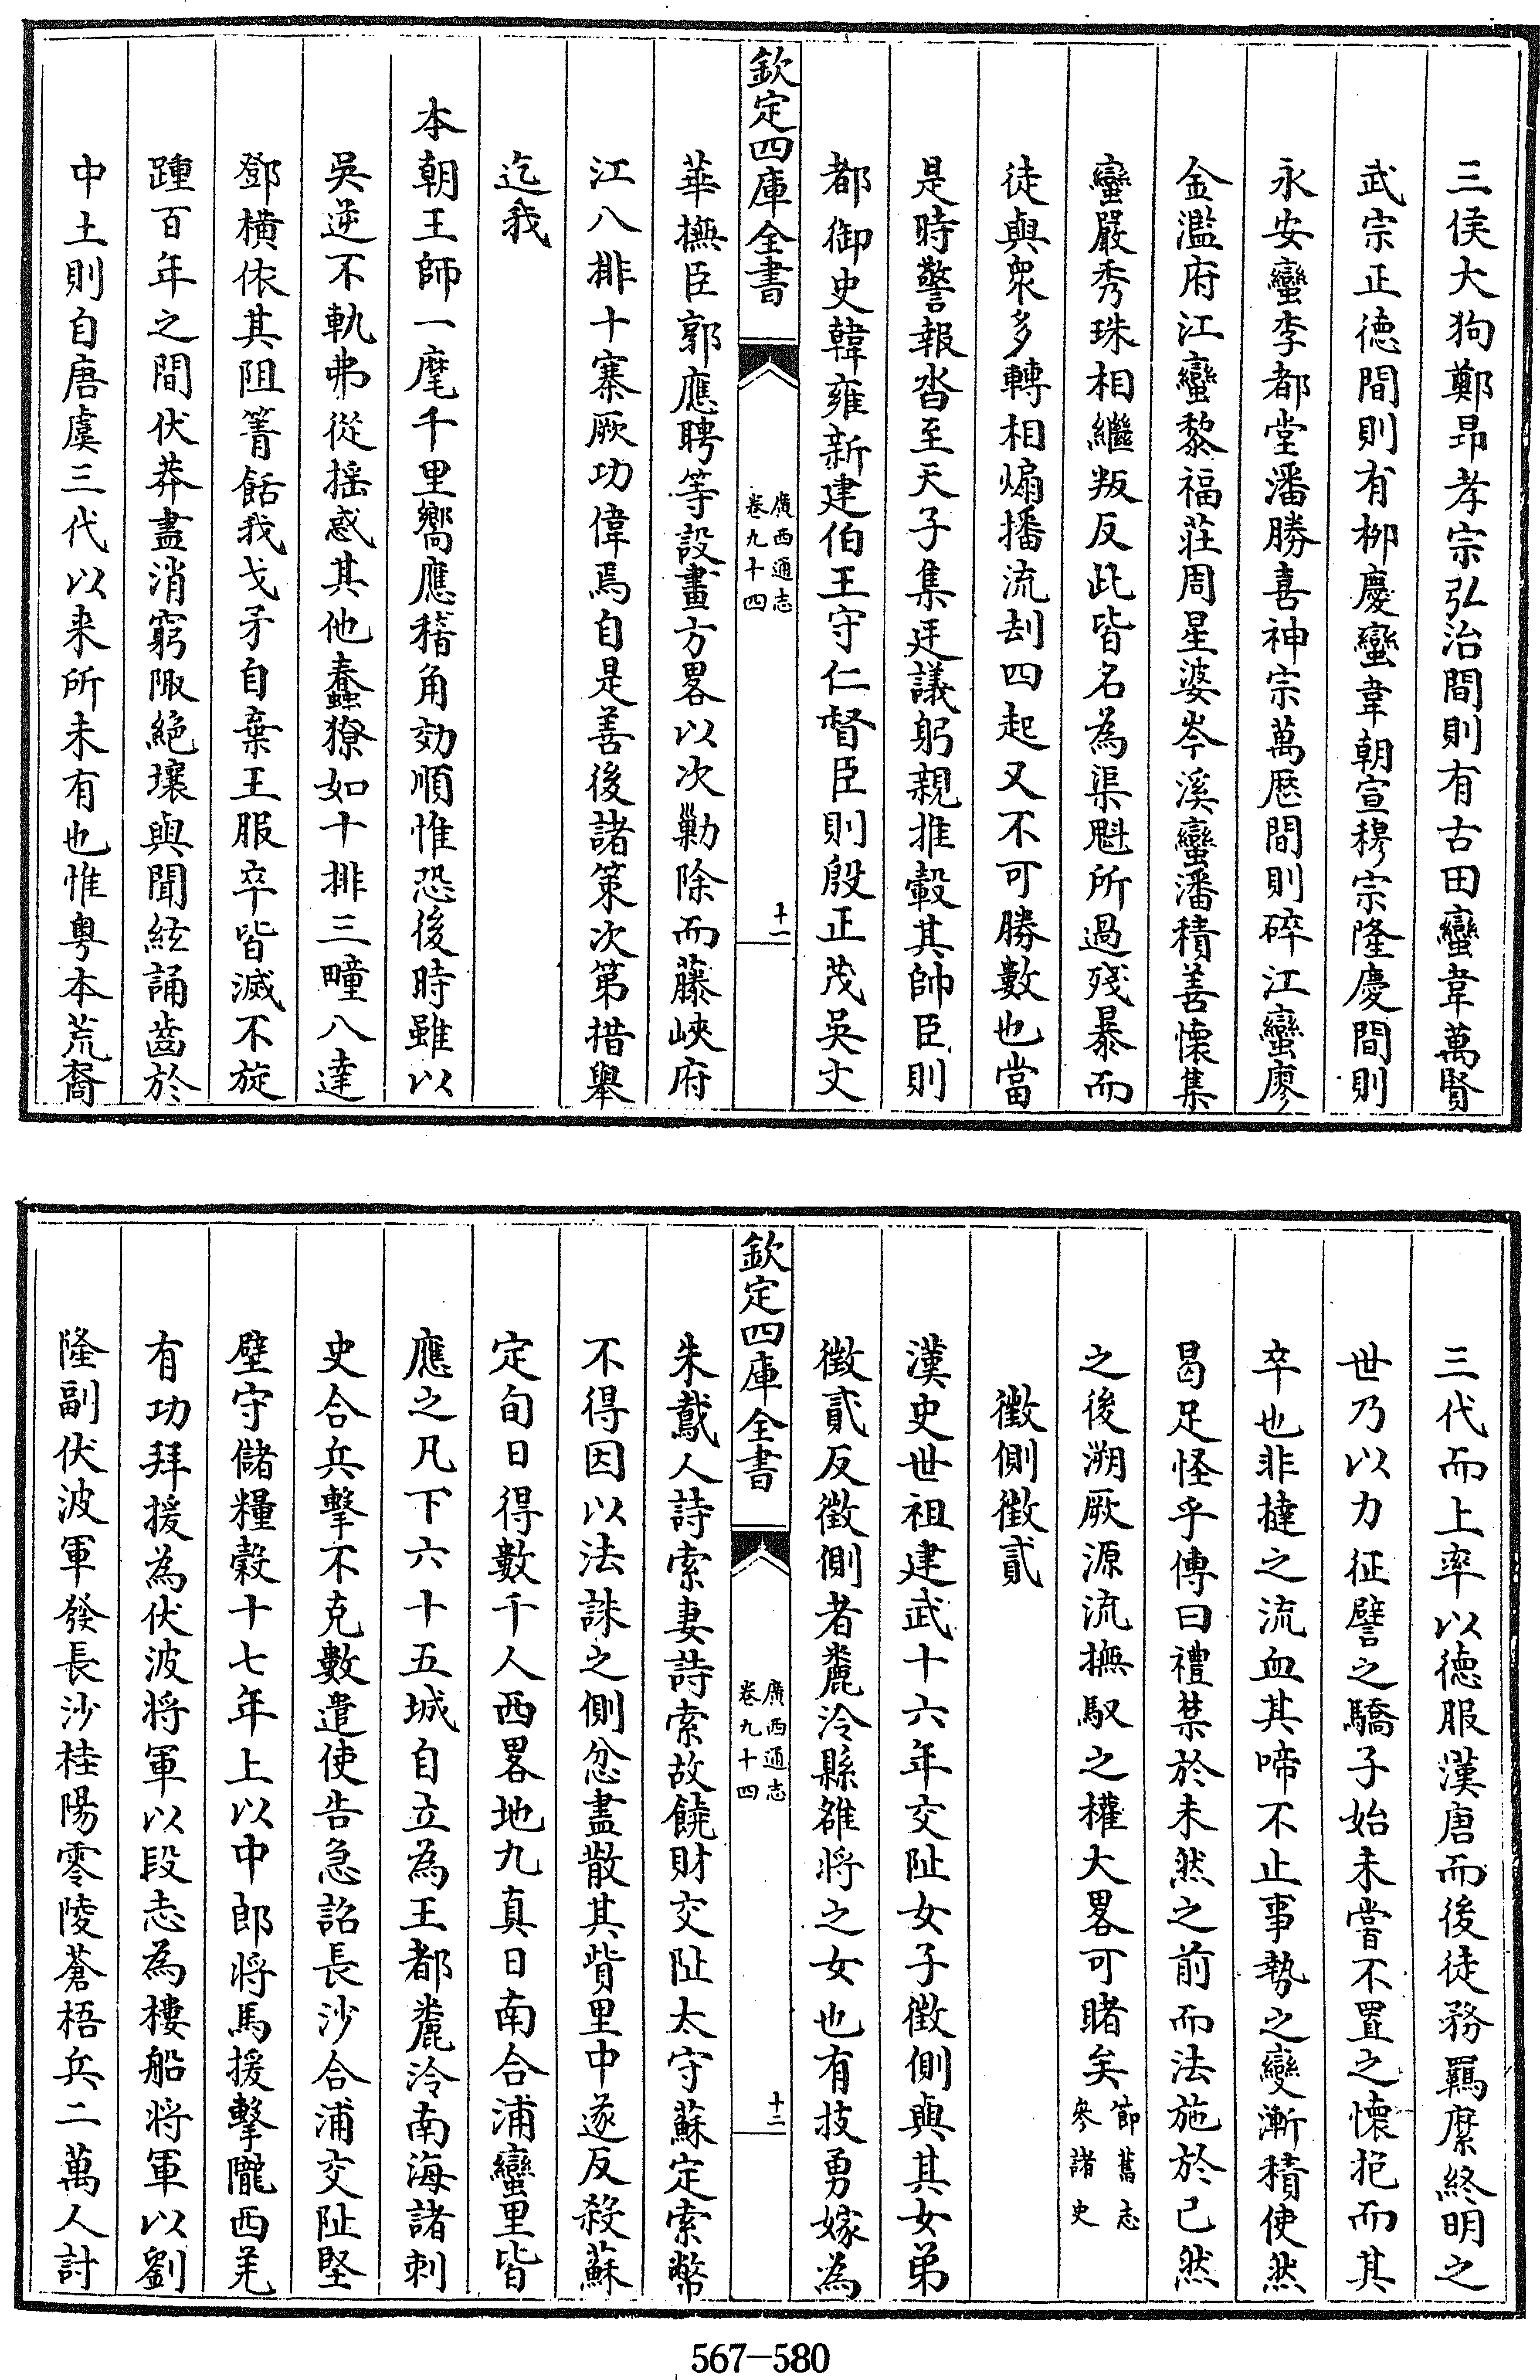 三侯大狗鄭昂孝宗弘治間則有古田蠻韋萬賢
武宗正徳間則有栁慶蠻韋朝宣穆宗隆慶間則
永安蠻李都堂潘勝喜神宗萬厯間則碎江蠻廖
金濫府江蠻黎福莊周星婆岑溪蠻潘積善懷集
蠻嚴秀珠相繼叛反此皆名為渠魁所過殘暴而
徒與衆多轉相煽播流刦四起又不可勝數也當
是時警報沓至天子集廷議躬親推轂其帥臣則
都御史韓雍新建伯王守仁督臣則殷正茂吳文
欽定四庫全書
廣西通志
卷九十四
十一
華撫臣郭應聘等設畫方畧以次勦除而藤峽府
江八排十寨厥功偉焉自是善後諸策次第措舉
迄我
本朝王師一麾千里嚮應稽角効順惟恐後時雖以
吳逆不軌弗從揺惑其他蠢獠如十排三疃八達
鄧橫依其阻箐餂我戈矛自棄王服卒皆滅不旋
踵百年之間伏莽盡消窮陬絶壤與聞絃誦齒於
中土則自唐虞三代以来所未有也惟粤本荒裔
三代而上率以徳服漢唐而後徒務羈縻終明之
世乃以力征譬之驕子始未嘗不置之懷抱而其
卒也非撻之流血其啼不止事勢之變漸積使然
曷足怪乎傳曰禮禁於未然之前而法施於已然
之後溯厥源流撫馭之權大畧可睹矣
節舊志
參諸史
徵側徵貳
漢史世祖建武十六年交阯女子徵側與其女弟
徵貳反徵側者麊泠縣雒将之女也有技勇嫁為
欽定四庫全書
廣西通志
卷九十四
十二
朱鳶人詩索妻詩索故饒財交阯太守蘇定索幣
不得因以法誅之側忿盡散其貲里中遂反殺蘇
定旬日得數千人西畧地九真日南合浦蠻里皆
應之凡下六十五城自立為王都麊泠南海諸刺
史合兵擊不克數遣使告急詔長沙合浦交阯堅
壁守儲糧穀十七年上以中郎将馬援擊隴西羌
有功拜援為伏波将軍以段志為樓船将軍以劉
隆副伏波軍發長沙桂陽零陵蒼梧兵二萬人討
567—580